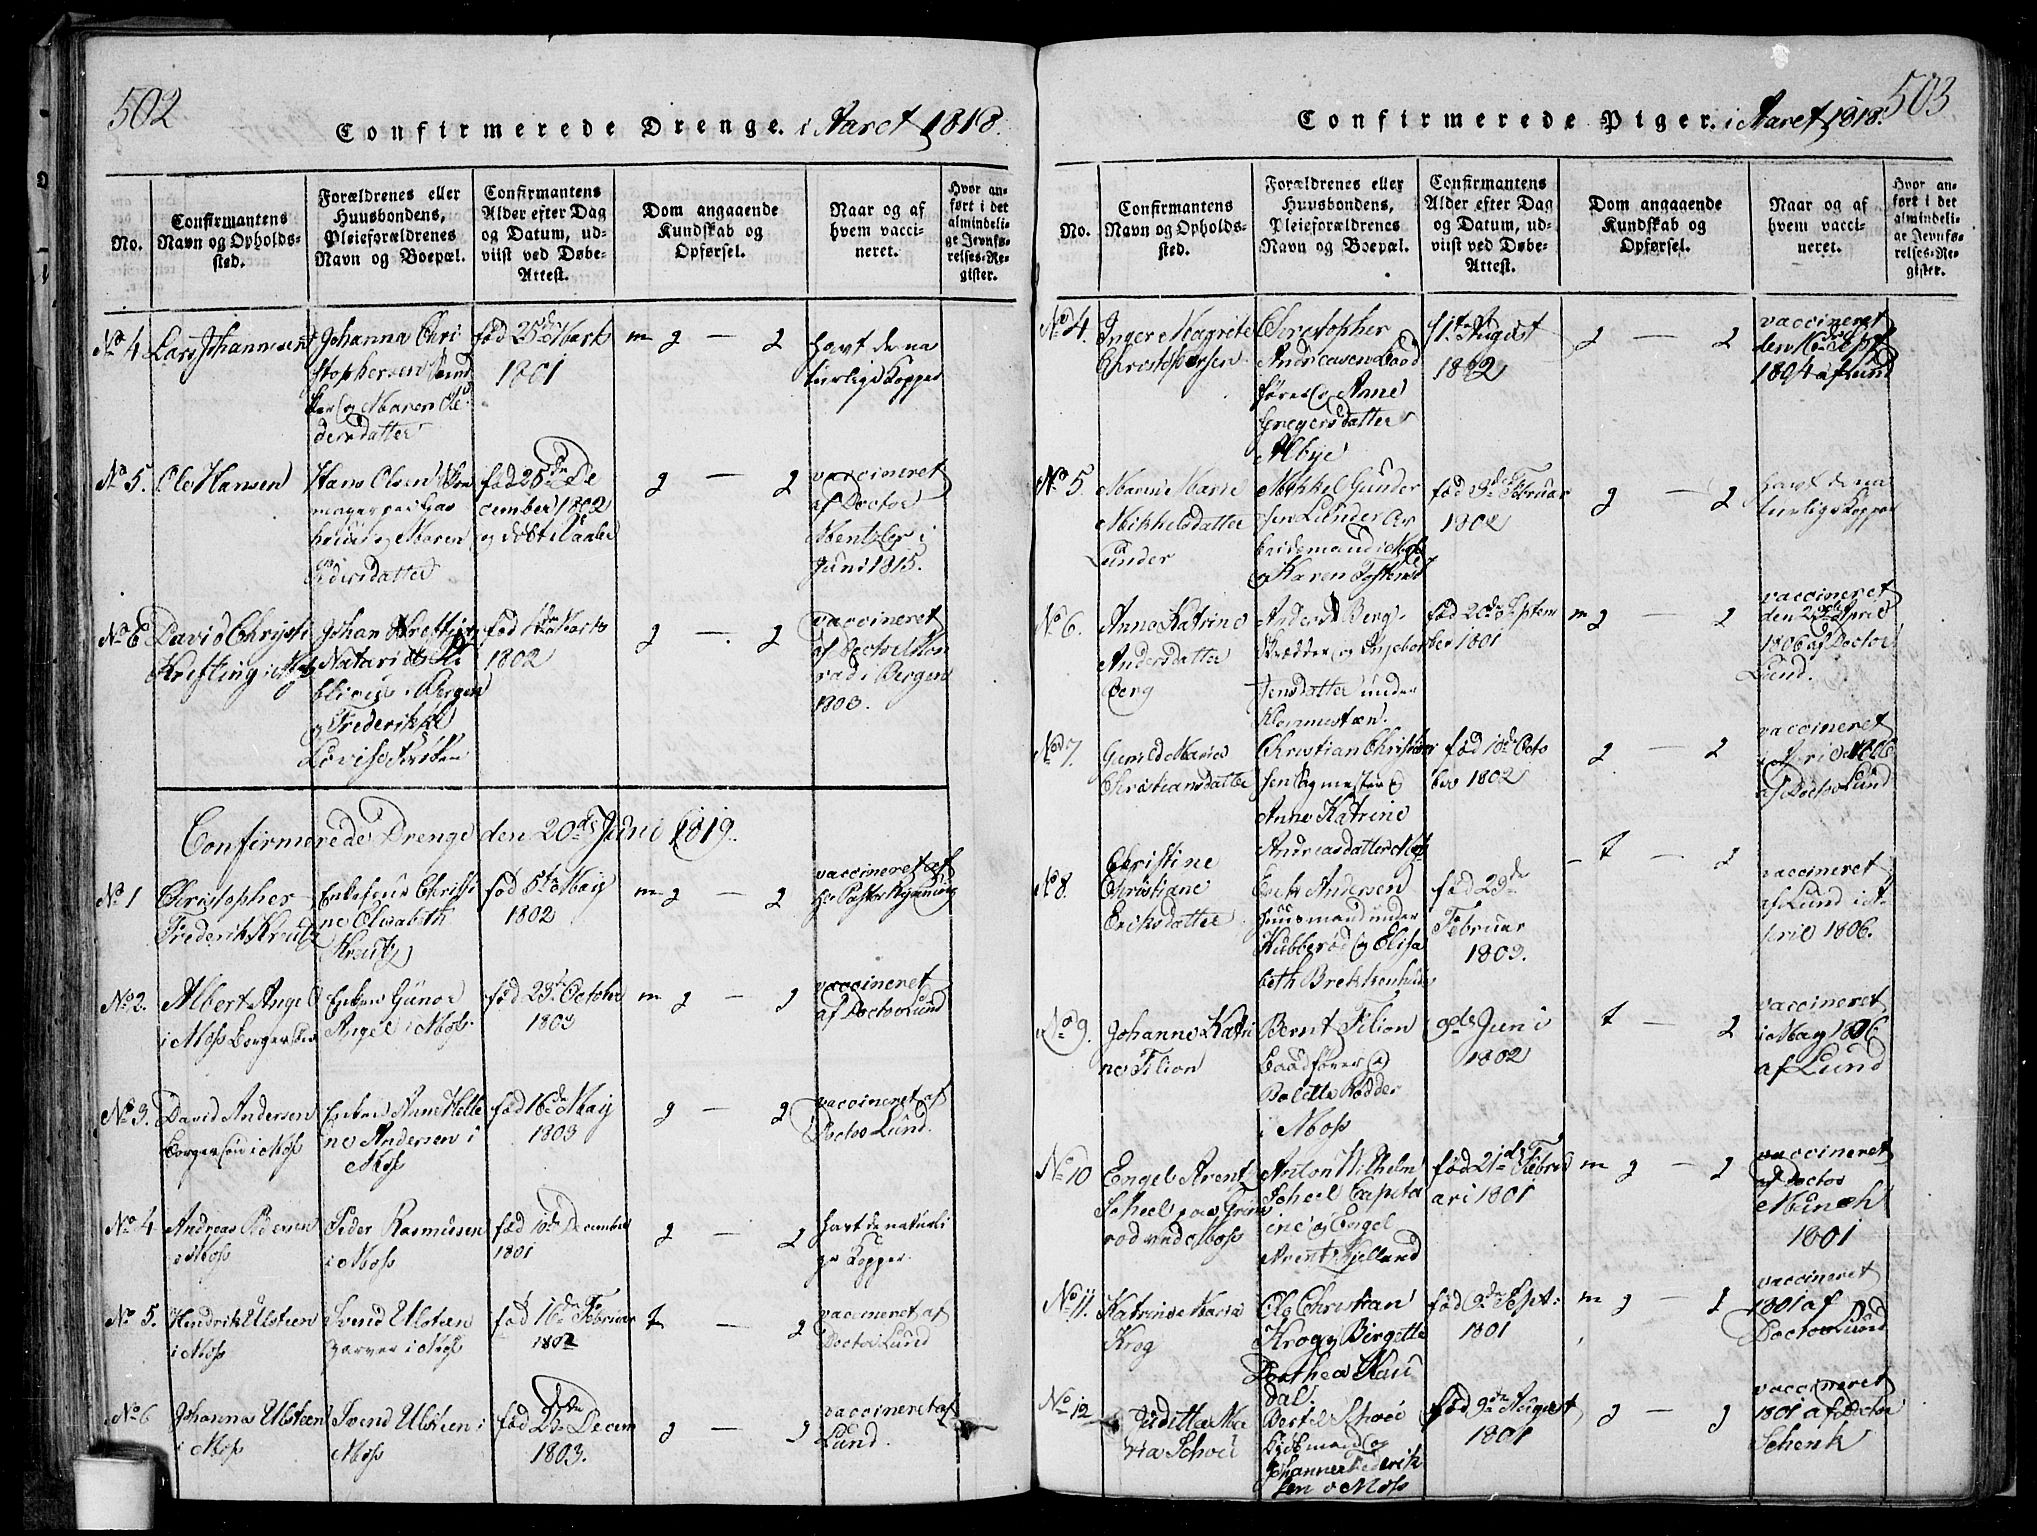 502
Confirmerede Drenge. i Aaret 1818.
No.
Confirmantens
Navn og Opholds-
sted.
Forældrenes eller
Huusbondens,
Pleieforældrenes
Navn og Boepæl.
Confirmantens
Alder efter Dag
og Datum, ud-
viist ved Døbe-
Attest.
Dom angaaende
Kundskab og
Opførsel.
Naar og af
hvem vacci-
neret.
Hvor an-
ført i det
almindeli-
ge Jevnfø-
relses-Re-
gister.
No 4
Lars Johannesen
Johanna Chri
stophersen
og Maren
dersdatter
fød 25de Marts
1801
m g — g
havt de na
turlige Kopper
No 5.
Ole Hansen
Hans Olsen
mager paa
og Maren
Pedersdatter
fød 25de De
cember 1802
og døbt i Vaaler
g — g
vaccineret
af Doctor
Mentzler i
Juni 1815.
No 6
David Chrysti
Krefting i Moss
Johan Krefting
Notarius Pu
blicus i Bergen
og Frederikke
Lovise
fød 1de Marts
1802
g — g
vaccineret
af Doctor Kon
rad i Bergen
1803.
Confirmerede Drenge den 20de Juni 1819.
No 1
Christopher
Frederik Kreutz
Enkefrue Christi
ne Elisabeth
Kreutz
fød 5te Maij
1802
m g — g
vaccineret af
Hr Pastor
No 2.
Albert Angel
i Moss Borgersøn
Enken Gunor
Angel i Moss.
fød 23de October
1803
m g — g
vaccineret
af Doctor Lund
No 3.
David Andersen
Borgersøn i Moss
Enken Anne Helle
ne Andersen i
Moss
fød 16de Maij
1803
g — g
vaccineret af
Doctor Lund.
No 4
Andreas Pedersen
i Moss
Peder Rasmussen
i Moss
fød 10de December
1801
g — g
havt de naturli
ge Kopper.
No 5.
Hendrik Ulsteen
i Moss
Svend Ulsteen
Farver i Moss
fød 16de Februar
1802
t — g
vaccineret af
Doctor Lund
No 6
Johannes Ulsteen
i Moss
Svend Ulsteen i
Moss
fød 23de Decem
1803.
g — g
vaccineret af
Lund.
503
Confirmerede Piger. i Aaret 1818.
No.
Confirmantens
Navn og Opholds-
sted.
Forældrenes eller
Huusbondens,
Pleieforældrenes
Navn og Boepæl.
Confirmantens
Alder efter Dag
og Datum, ud-
viist ved Døbe-
Attest.
Dom angaaende
Kundskab og
Opførsel.
Naar og af
hvem vacci-
neret.
Hvor an-
ført i det
almindeli-
ge Jevnfø-
relses-Re-
gister.
No 4.
Inger Magrete
Christophersen
Christopher
Andreasen Baad
fører og Anne
Gregersdatter
Albye
11te August
1802
g — g
vaccineret
den 16de Sept
1804 af Lund
No 5.
Maren Marie
Mikkelsdatter
Lunder
Mikkel Gunder
sen Lunder Ar
beidsmand i Moss
og Karen Tostensd
fød 3de Februar
1802
g — g
havt de na
turlige Kopper
No 6.
Anne Katrine
Andersdatter
Berg
Anders Berg
Skrædder og Ingebor
Jensdatter under
fød 20de Septem
ber 1801
m g — g
vaccineret
den 29de April
1806 af Doctor
Lund.
No 7.
Gunild Marie
Christiansdatter
Christian Christian
sen Sagmester og
Anne Katrine
Andreasdatter Moss
fød 10de Octo
ber 1802
g — g
vaccineret
i April
af Doctor Lund
No 8.
Christine
Christiane
Eriksdatter
Erik Andersen
Huusmand under
Kubberød og Elisa
beth Brekkenhuus
fød 23de
Februar
1803.
t — g
vaccineret
af Lund i A
pril 1806.
No 9.
Johanne Katri
ne Filion
Bernt Filion
Baadfører og
Bolette Rødder
i Moss
9de Juni
1802
t — g
vaccineret
i May 1806
af Lund
No 10
Engel Arent
Scheel paa Grims
rød ved Moss
Anton Wilhelm
Scheel Capita
ine og Engel
Arent Kjelland
fød 21de Febru
ari 1801
m g — g
vaccineret
af Doctor
Munch
1801
No 11.
Katrine Maria
Krog
Ole Christian
Krog og Birgette
Dorthea Kau
dal
fød 9de Sept:
1801
m g — g
vaccineret
1801 af
Doctor Lund
No 12
Juditta Ma
ria Schou
Bertel Schou
Kjøbmand og
Johanne Frederik
sen i Moss
fød 9de August
1801
g — g
vaccineret
1801 af Doctor
Schenk